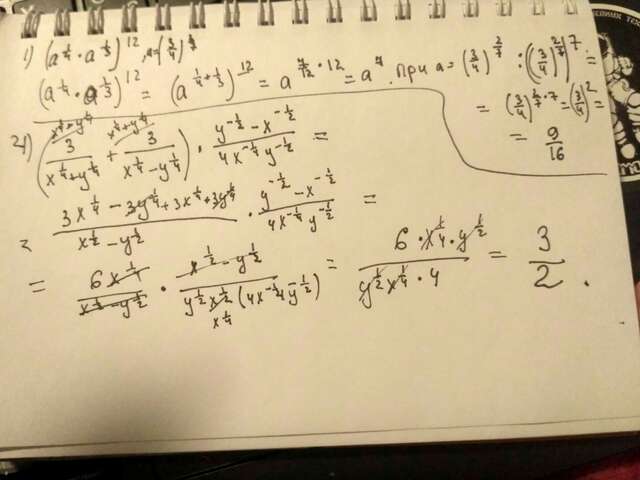 1) (a^{1/4} · a^{1/3})^{12}, a = (3/4)^{2/7}
(a^{1/4} · a^{1/3})^{12} = (a^{1/4+1/3})^{12} = a^{7/12 · 12} = a^7. при a = (3/4)^{2/7} : ((3/4)^{2/7})^7 =
= (3/4)^{2/7 · 7} = (3/4)^2 =
= 9/16
x^{1/4} - y^{1/4} x^{1/4} + y^{1/4}
2) (3/(x^{1/4} + y^{1/4}) + 3/(x^{1/4} - y^{1/4})) · (y^{-1/2} - x^{-1/2})/(4x^{-1/4} y^{-1/2}) =
= (3x^{1/4} - 3y^{1/4} + 3x^{1/4} + 3y^{1/4})/(x^{1/2} - y^{1/2}) · (y^{-1/2} - x^{-1/2})/(4x^{-1/4} y^{-1/2}) =
= 6x^{1/4}/(x^{1/2} - y^{1/2}) · (x^{1/2} - y^{1/2})/(y^{1/2} x^{1/2} (4x^{-1/4} y^{-1/2})) = (6 · x^{1/4} · y^{1/2})/(y^{1/2} x^{1/4} · 4) = 3/2.
x^{1/4}